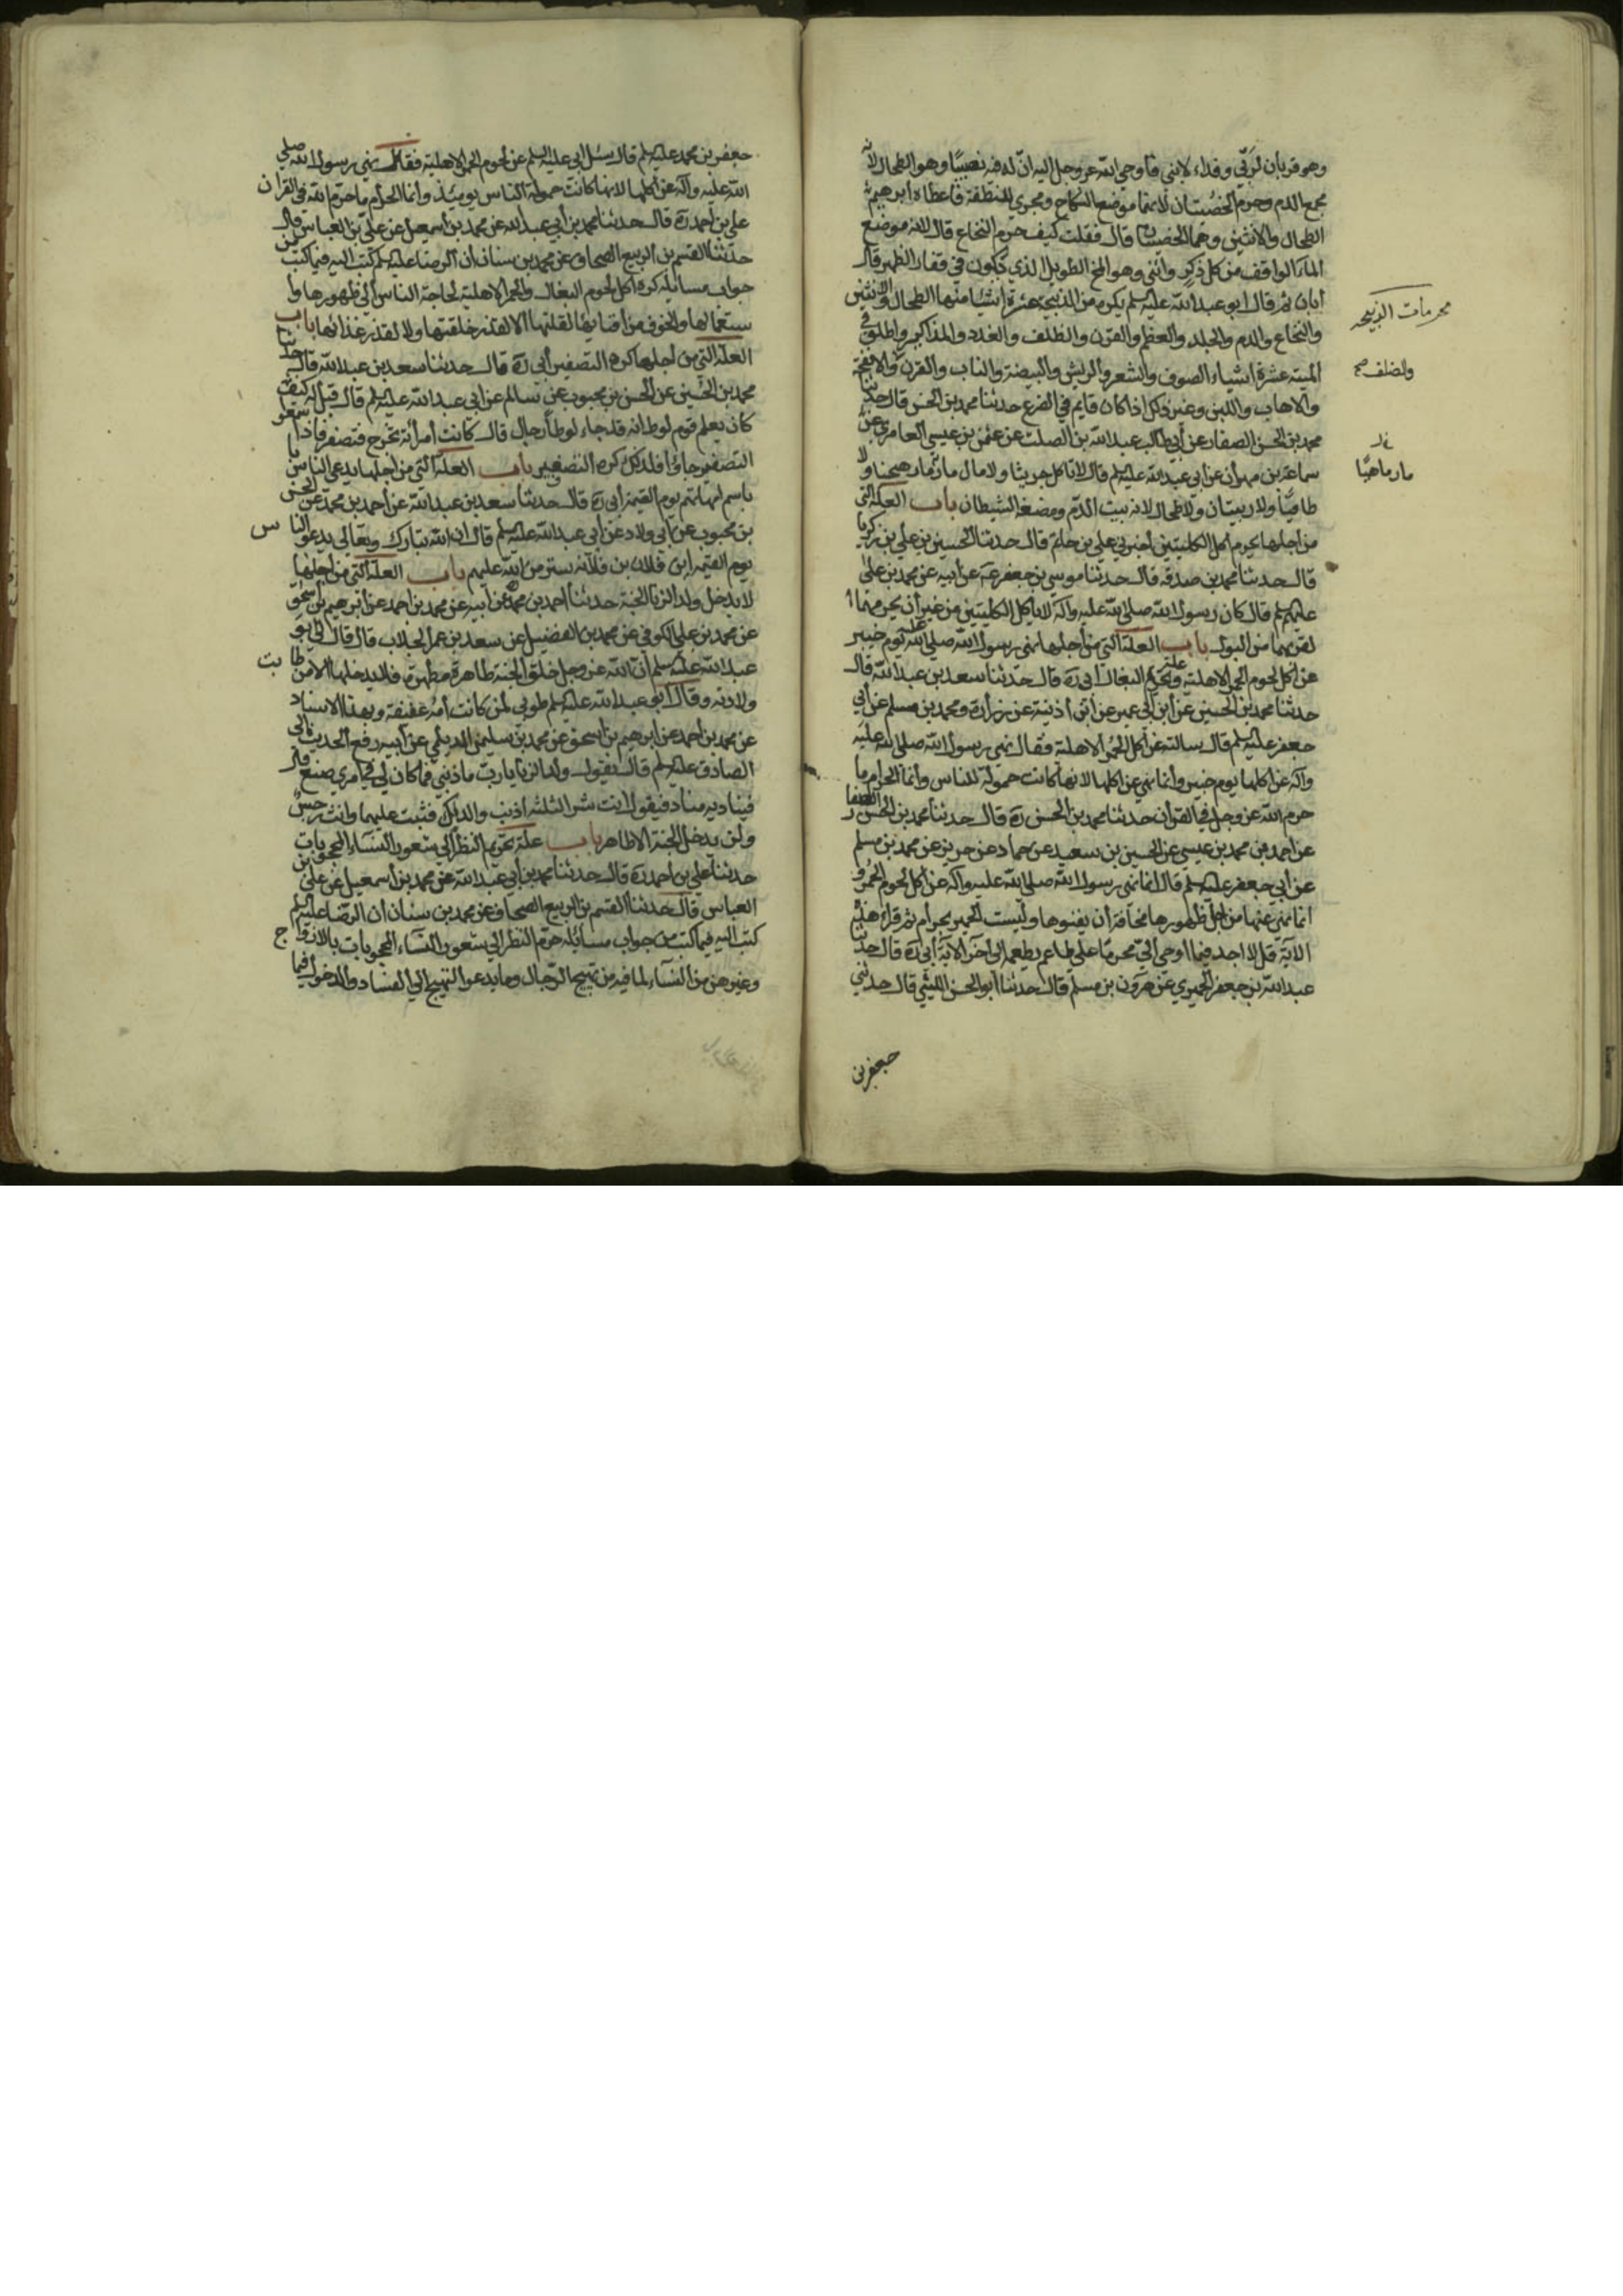 وهو قربان لربي وفداء لابني فاوحي الله عز وجل اليه ان له فيه نصيبا وهو الطحال لانه
مجمع الدم وحرم الخصيتان لانهما موضع النكاح ومجري للنطفة فاعطاه ابرهيم
الطحال والانثيين وهما الخصيتان قال فقلت كيف حرم النخاع قال لانه موضع
الماء الدافق من كل ذكر وانثي وهو المخ الطويل الذي يكون في فقار الظهر قال
ابان ثم قال ابو عبد الله عليه السلم يكره من الذبيحة عشرة اشياء منها الطحال والانثيين
والنخاع والدم والجلد والعظم والقرن والظلف والغدد والمذاكير واطلق في
الميتة عشرة اشياء الصوف والشعر والريش والبيضة والناب والقرن والانفحة
والاهاب واللبن وغير ذلك اذا كان قايم في الضرع حدثنا محمد بن الحسن قال حدثنا
محمد بن الحسن الصفار عن أبي طالب عبد الله بن الصلت عن عثمن بن عيسي العامري عن
سماعة بن مهران عن ابي عبد الله عليه السلم قال لا تاكل جريثا ولا مارماهيجا ولا
طافيا ولا اربيان ولا طحال لانه بيت الدم ومضغة الشيطان باب العلة التي
من اجلها يحرم اكل الكليتين أخبرني علي بن حاتم قال حدثنا الحسين بن علي بن زكريا
قال حدثنا محمد بن صدقه قال حدثنا موسي بن جعفر عن ابيه عن محمد بن علي
عليهم السلم قال كان رسول الله صلي الله عليه وآله لا ياكل الكليتين من غير أن يحرمهما
لقربهما من البول باب العلة التي من أجلها نهي رسول الله صلي الله عليه يوم خيبر
عن اكل لحوم الحمر الاهلية وعلة تحريم البغال ابي ره قال حدثنا سعد بن عبد الله قال
حدثنا محمد بن الحسين عن ابن ابي عمير عن ابن أذنية عن زرارة ومحمد بن مسلم عن أبي
جعفر عليه السلم قال سالته عن اكل الحمر الاهلية فقال نهي رسول الله صلي الله عليه
وآله عن اكلها يوم خيبر وأنما نهي عن اكلها لانها كانت حمولة للناس وأنما الحرام ما
حرم الله عز وجل في القرأن حدثنا محمد بن الحسن ره قال حدثنا محمد بن الحسن الصفار
عن احمد بن محمد بن عيسي عن الحسين بن سعيد عن حماد عن حريز عن محمد بن مسلم
عن أبي جعفر عليه السلم قال انما نهي رسول الله صلي الله عليه وآله عن اكل لحوم الحمر و
انما نهي عنها من أجل ظهورها مخافة أن يفنوها وليست الحمير بحرام ثم قراء هذه
الآية قل لا اجد فيما اوحي الي محرما علي طاعم يطعمه الي آخر الآية أبي ره قال حدثنا
عبد الله بن جعفر الحميري عن هرون بن مسلم قال حدثنا أبو الحسن الليثي قال حدثني
جعفر بن
محرمات الذبيحه
والضلف صح
مارماهيا
جعفر بن محمد عليه السلم قال سئل ابي عليه السلم عن لحوم الحمر الاهلية فقال نهي رسول الله صلي
الله عليه وآله عن اكلها لانها كانت حمولة الناس يومئذ وأنما الحرام ما حرم الله في القرآن
علي بن أحمد ره قال حدثنا محمد بن أبي عبد الله عن محمد بن أسمعيل عن علي بن العباس قال
حدثنا القسم بن الربيع الصحاف عن محمد بن سنان ان الرضا عليه السلم كتب اليه فيما كتب من
جواب مسائله كره اكل لحوم البغال والحمر الاهلية لحاجة الناس الي ظهورها وا
ستعمالها والخوف من افنائها لقلتها لا لقذر خلقتها ولا لقذر غذائها باب
العلة التي من اجلها كره التصفير أبي ره قال حدثنا سعد بن عبد الله قال حدثنا
محمد بن الحسين عن الحسن بن محبوب عن سالم عن ابي عبد الله عليه السلم قال قيل له كيف
كان يعلم قوم لوط انه قد جاء لوطا رجال قال كانت أمرأته تخرج فتصفر فاذا سمعوا
التصفير جاؤا فلذلك كره التصفير باب العلة التي من اجلها يدعي الناس
باسم امهاتهم يوم القيمة أبي ره قال حدثنا سعد بن عبد الله عن أحمد بن محمد عن الحسن
بن محبوب عن أبي ولاد عن أبي عبد الله عليه السلم قال ان الله تبارك وتعالي يدعو الناس
يوم القيمة اين فلان بن فلانة ستر من الله عليهم باب العلة التي من اجلها
لا يدخل ولد الزنا الجنة حدثنا أحمد بن محمد عن أبيه عن محمد بن احمد عن ابرهيم بن اسحق
عن محمد بن علي الكوفي عن محمد بن الفضيل عن سعد بن عمر الجلاب قال قال لي ابو
عبد الله عليه السلم أن الله عز وجل خلق الجنة طاهرة مطهرة فلا يدخلها الا من طابت
ولادته وقال ابو عبد الله عليه السلم طوبي لمن كانت أمه عفيفة وبهذا الاسناد
عن محمد بن أحمد عن ابرهيم بن اسحق عن محمد بن سليمن الديلمي عن أبيه رفع الحديث الي
الصادق عليه السلم قال يقول ولد الزنا يا رب ما ذنبي فما كان لي في امري صنع قال
فيناديه مناد فيقول أنت شر الثلثة اذنب والداك فثبت عليهما وانت رجس
ولن يدخل الجنة الا طاهر باب علة تحريم النظر الي شعور النساء المحجوبات
حدثنا علي بن احمد ره قال حدثنا محمد بن أبي عبد الله عن محمد بن أسمعيل عن علي بن
العباس قال حدثنا القسم بن الربيع الصحاف عن محمد بن سنان ان الرضا عليه السلم
كتب اليه فيما كتب من جواب مسائله حرم النظر الي شعور النساء المحجوبات بالازواج
وغيرهن من النساء لما فيه من تهييج الرجال وما يدعو التهييج الي الفساد والدخول فيما